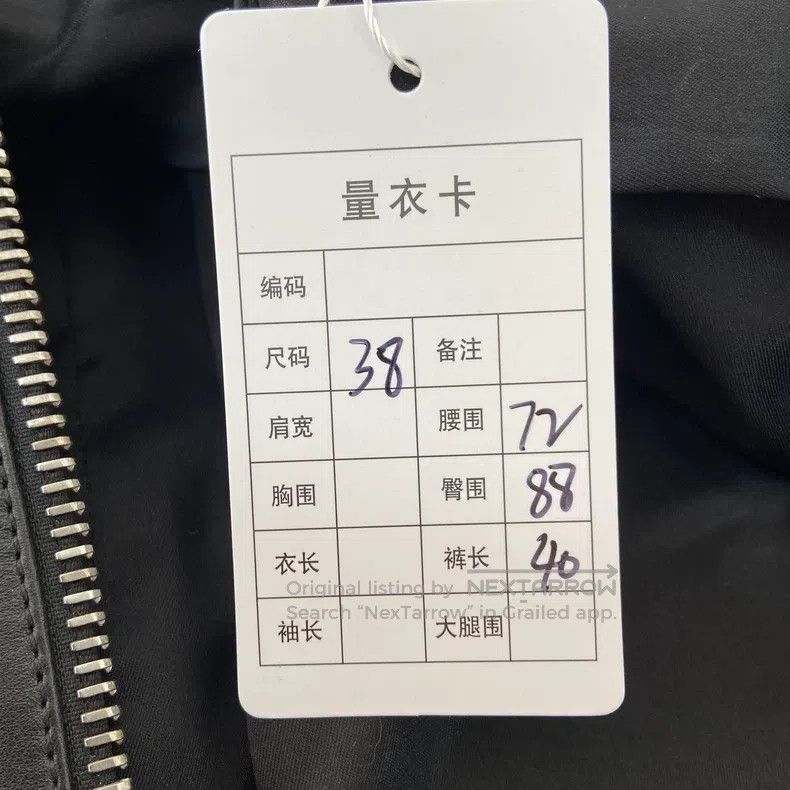 量衣卡
编码
尺码 38 备注
肩宽 腰围 72
胸围 臀围 88
衣长 裤长 40
Original listing by NEXTARROW
Search “NexTarrow” in Grailed app.
袖长 大腿围